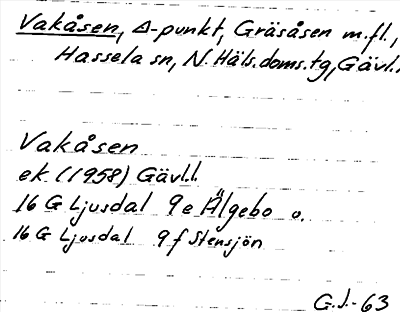 Vakåsen, Δ-punkt, Gräsåsen m.fl.,
Hassela sn, N. Häls.doms.tg, Gävl.
Vakåsen
ek. (1958) Gävl.l.
16 G Ljusdal 9 e Älgebo o.
16 G Ljusdal 9 f Stensjön
G.J.-63